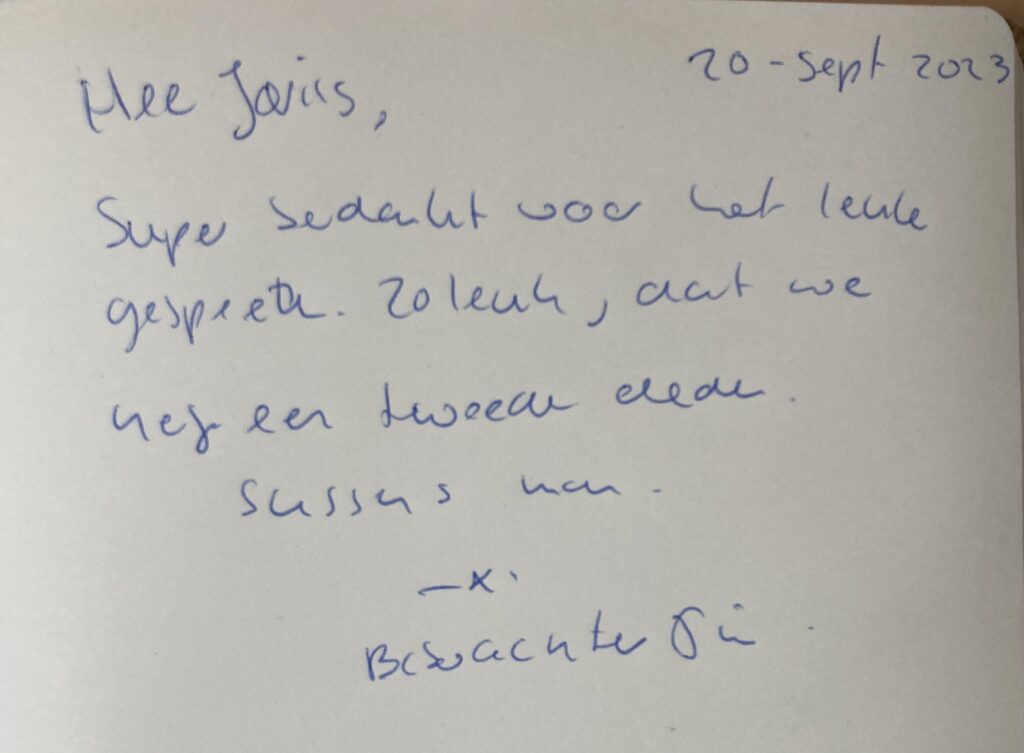 20 - Sept 2023
Hee Joris,
Super bedankt voor het leuke
gesprek. Zo leuk, dat we
nog een tweede deden.
Sussus man.
- x.